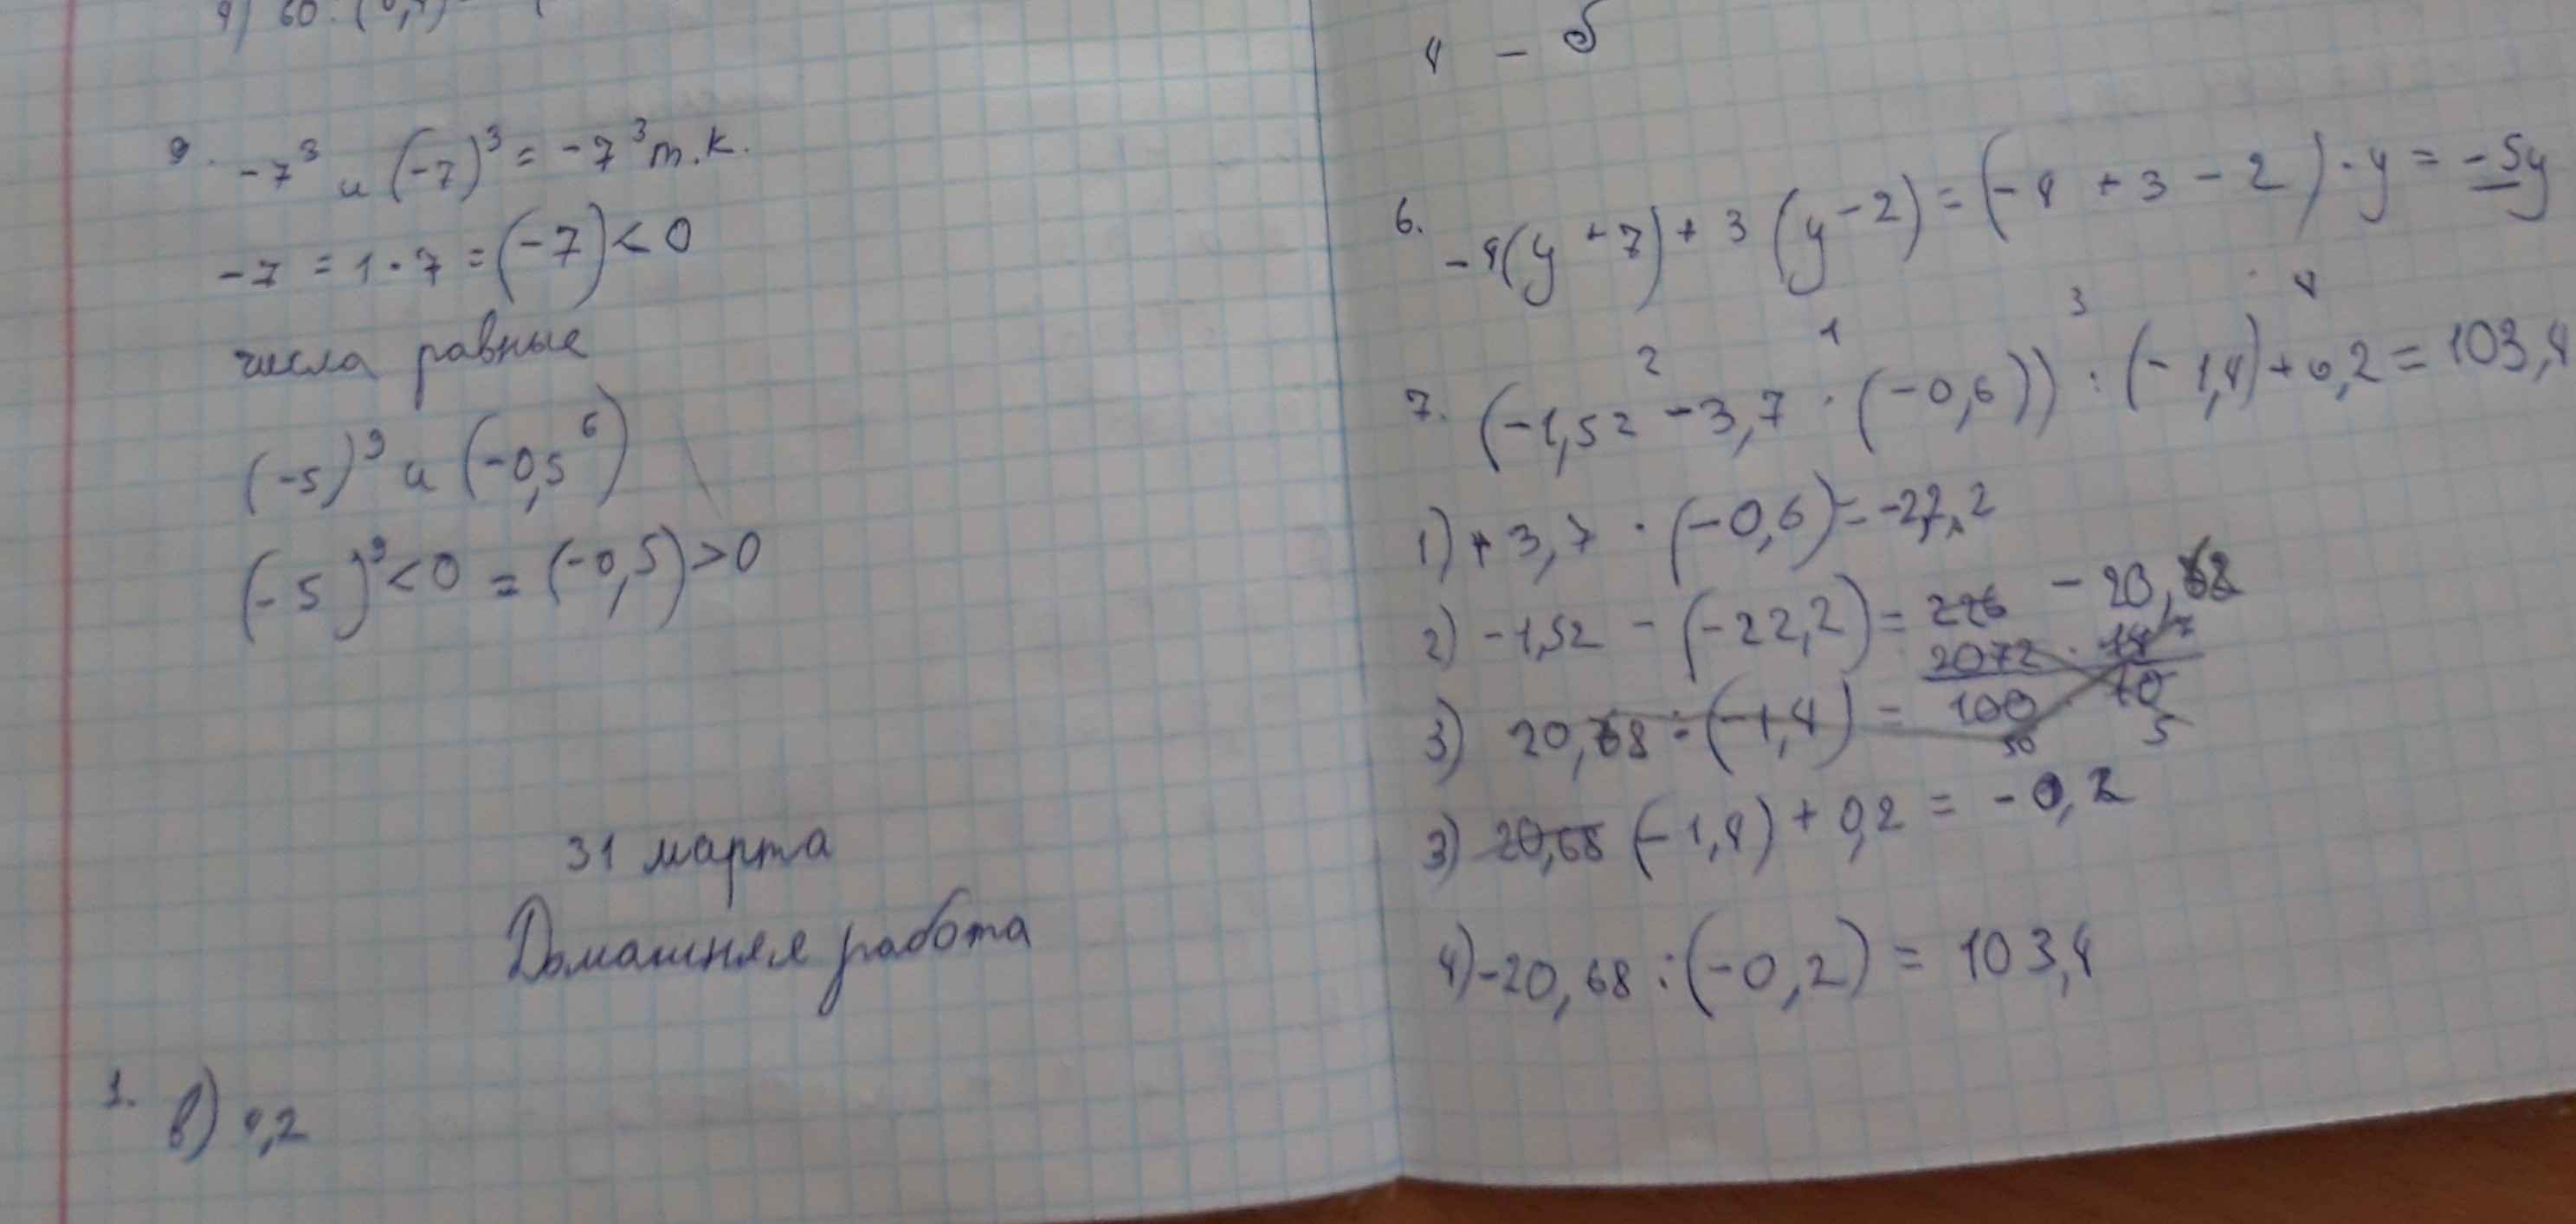 4) 60 : (0,4)
9. -7³ и (-7)³ = -7³ т.к.
-7 = 1 · 7 = (-7) < 0
числа равные
(-5)⁹ и (-0,5⁶)
(-5)⁹ < 0 = (-0,5) > 0
31 марта
Домашняя работа
1. в) 4,2
4 - б
6. -4(y + 7) + 3(y - 2) = (-4 + 3 - 2) · y = -5y
2 1 3 4
7. (-1,52 - 3,7 · (-0,6)) : (-1,4) + 0,2 = 103,4
1) + 3,7 · (-0,6) = -22,2
2) -1,52 - (-22,2) = 226 - 20,68
3) 20,68 : (-1,4) = 2072/100 · 14/10 7 50 5
3) 20,68 (-1,4) + 0,2 = -0,2
4) -20,68 : (-0,2) = 103,4